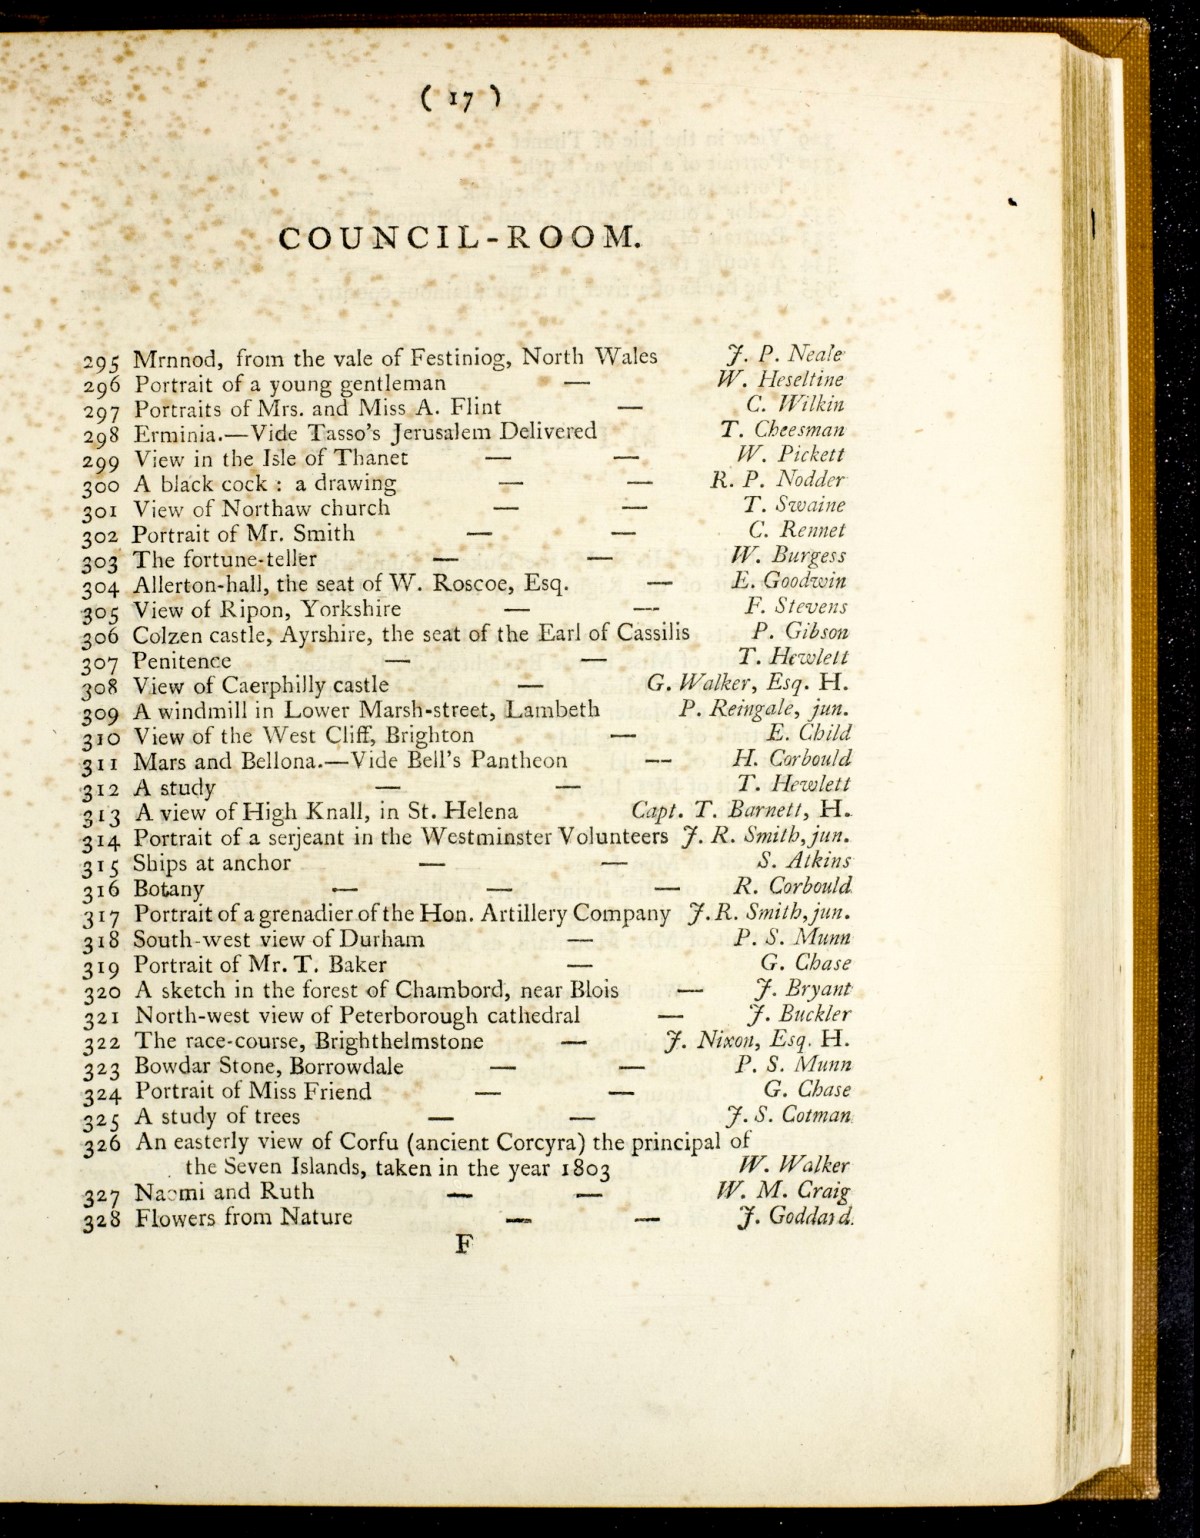 ( 17 )
COUNCIL-ROOM.
295 Mrnnod, from the vale of Festiniog, North Wales J. P. Neale
296 Portrait of a young gentleman — W. Heseltine
297 Portraits of Mrs. and Miss A. Flint — C. Wilkin
298 Erminia.—Vide Tasso's Jerusalem Delivered T. Cheesman
299 View in the Isle of Thanet — — W. Pickett
300 A black cock : a drawing — — R. P. Nodder
301 View of Northaw church — — T. Swaine
302 Portrait of Mr. Smith — — C. Rennet
303 The fortune-teller — — W. Burgess
304 Allerton-hall, the seat of W. Roscoe, Esq. — E. Goodwin
305 View of Ripon, Yorkshire — — F. Stevens
306 Colzen castle, Ayrshire, the seat of the Earl of Cassilis P. Gibson
307 Penitence — — T. Hewlett
308 View of Caerphilly castle — G. Walker, Esq. H.
309 A windmill in Lower Marsh-street, Lambeth P. Reingale, jun.
310 View of the West Cliff, Brighton — E. Child
311 Mars and Bellona.—Vide Bell's Pantheon — H. Corbould
312 A study — — T. Hewlett
313 A view of High Knall, in St. Helena Capt. T. Barnett, H.
314 Portrait of a serjeant in the Westminster Volunteers J. R. Smith, jun.
315 Ships at anchor — — S. Atkins
316 Botany — — — R. Corbould
317 Portrait of a grenadier of the Hon. Artillery Company J. R. Smith, jun.
318 South-west view of Durham — P. S. Munn
319 Portrait of Mr. T. Baker — G. Chase
320 A sketch in the forest of Chambord, near Blois — J. Bryant
321 North-west view of Peterborough cathedral — J. Buckler
322 The race-course, Brighthelmstone — J. Nixon, Esq. H.
323 Bowdar Stone, Borrowdale — — P. S. Munn
324 Portrait of Miss Friend — — G. Chase
325 A study of trees — — J. S. Cotman
326 An easterly view of Corfu (ancient Corcyra) the principal of
the Seven Islands, taken in the year 1803 W. Walker
327 Naomi and Ruth — — W. M. Craig
328 Flowers from Nature — — J. Goddard.
F